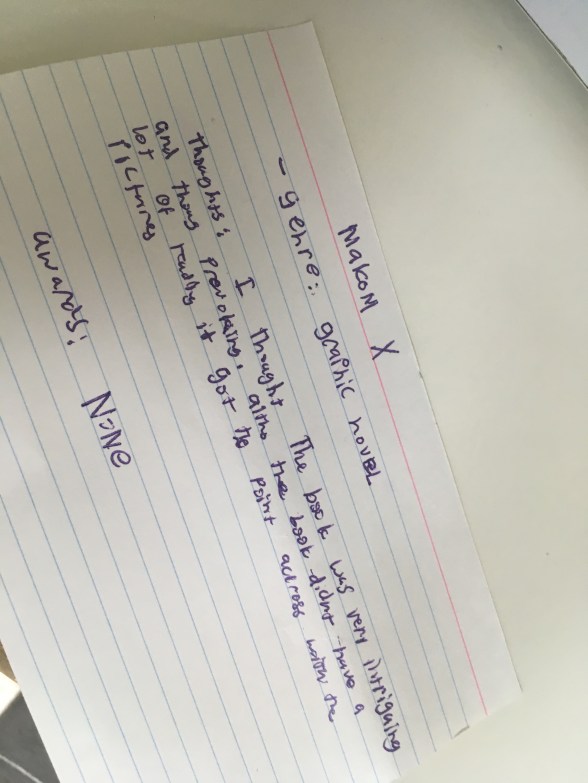 Makom X
- genre: graphic novel
thoughts: I thought The book was very intriguing
and thoug provoking. altho the book didnt have a
lot of reading it got the point across the
pictures
awards: NONE